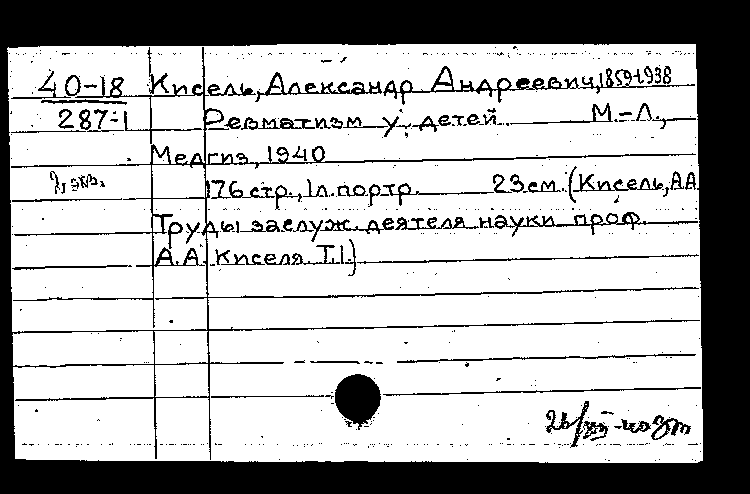 40-18 Кисель, Александр Андреевич, 1859-1938
287-1 Ревматизм у детей М.-Л.,
Медгиз, 1940
176 стр., 1л. портр. 23см. (Кисель, А.А.
Труды заслуж. деятеля науки проф.
А.А. Киселя Т.1.)